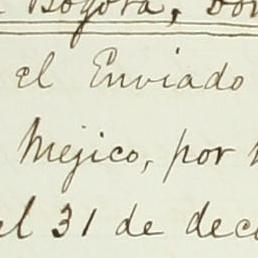 Bogotá,
el Enviado
Mejico, por
el 31 de